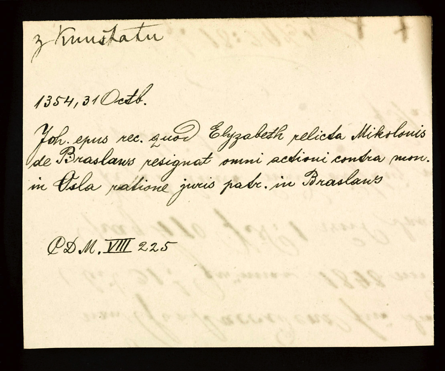 z Kunstatu
1354, 31 Octb.
Joh. epus rec. quod Elyzabeth relicta Mikolonis
de Braslaws resignat omni actioni contra mon.
in Osla ratione juris patr. in Braslaws
CDM. VIII 225